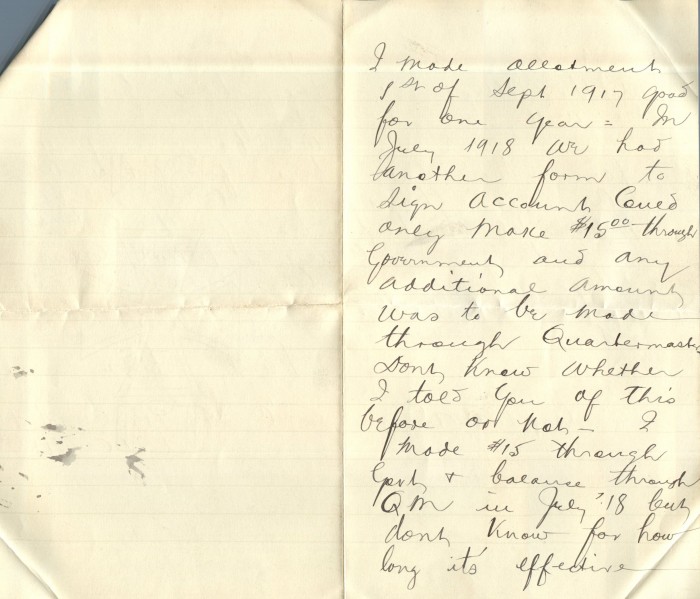 I made allotment
1st of Sept 1917 good
for one year = In
July 1918 we had
another form to
sign account Could
only make $15.00 through
Government and any
additional amount
was to be made
through Quartermaster
Dont know whether
I told you of this
before or not - I
made $15 through
Govt & balance through
QM in July '18 but
dont know for how
long it's effective